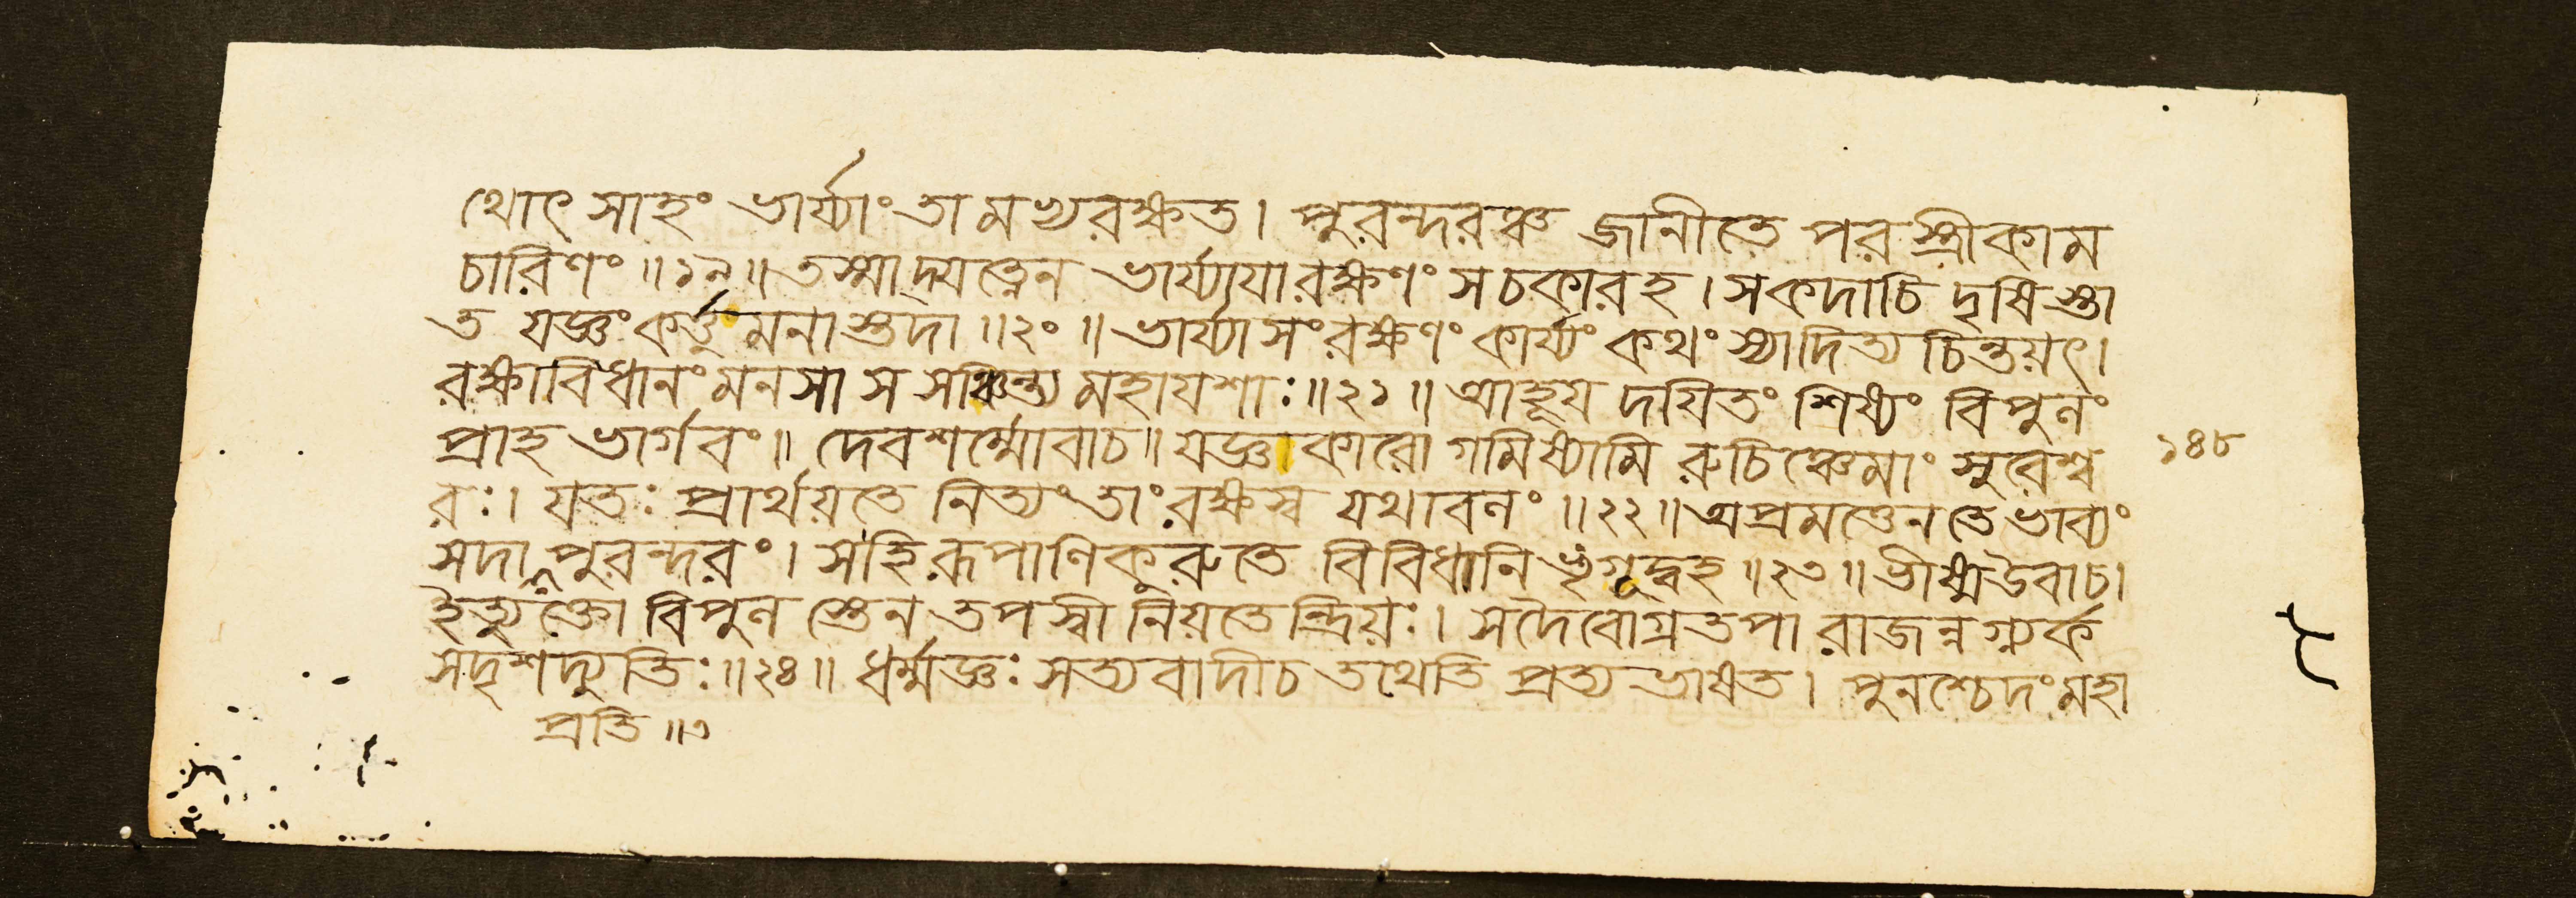 থোৎসাহং ভার্য্যাং তামভ্যরক্ষত। পুরন্দরঞ্চ জানীতে পরস্ত্রীকাম
চারিণং॥১৯॥তস্মাদ্যত্নেন ভার্য্যাযা রক্ষণং স চকার হ। স কদাচিদৃষিস্তা
ত যজ্ঞং কর্ত্তুমনাস্তদা॥২০॥ভার্য্যাসংরক্ষণং কার্য্যং কথং স্যাদিত্যচিন্তয়ৎ।
রক্ষাবিধানং মনসা স সঞ্চিন্ত্য মহাযশাঃ॥২১॥আহূয় দয়িতং শিষ্যং বিপুলং
প্রাহ ভার্গবং॥ দেবশর্ম্মোবাচ॥যজ্ঞকারো গমিষ্যামি রুচিঞ্চেমাং সুরেশ্ব
রঃ। যতঃ প্রার্থয়তে নিত্যং তাং রক্ষস্ব যথাবলং॥২২॥অপ্রমত্তেন তে ভাব্যং
সদা পুরন্দরং। স হি রূপাণি কুরুতে বিবিধানি ভৃগূদ্বহ॥২৩॥ভীষ্ম উবাচ।
ইত্যুক্তো বিপুলস্তেন তপস্বী নিয়তেন্দ্রিয়ঃ। সদৈবোগ্রতপা রাজন্নগ্ন্যর্ক
সদৃশদ্যুতিঃ॥২৪॥ ধর্ম্মজ্ঞঃ সত্যবাদী চ তথেতি প্রত্যভাষত। পুনশ্চেদং মহা
প্রতি॥৩
১৪৮